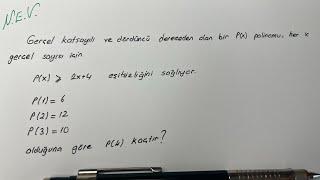 N.E.V.
Gerçel katsayılı ve dördüncü dereceden olan bir P(x) polinomu, her x
gerçel sayısı için
P(x) ⩾ 2x+4 eşitsizliğini sağlıyor.
P(1) = 6
P(2) = 12
P(3) = 10
olduğuna göre P(4) kaçtır?